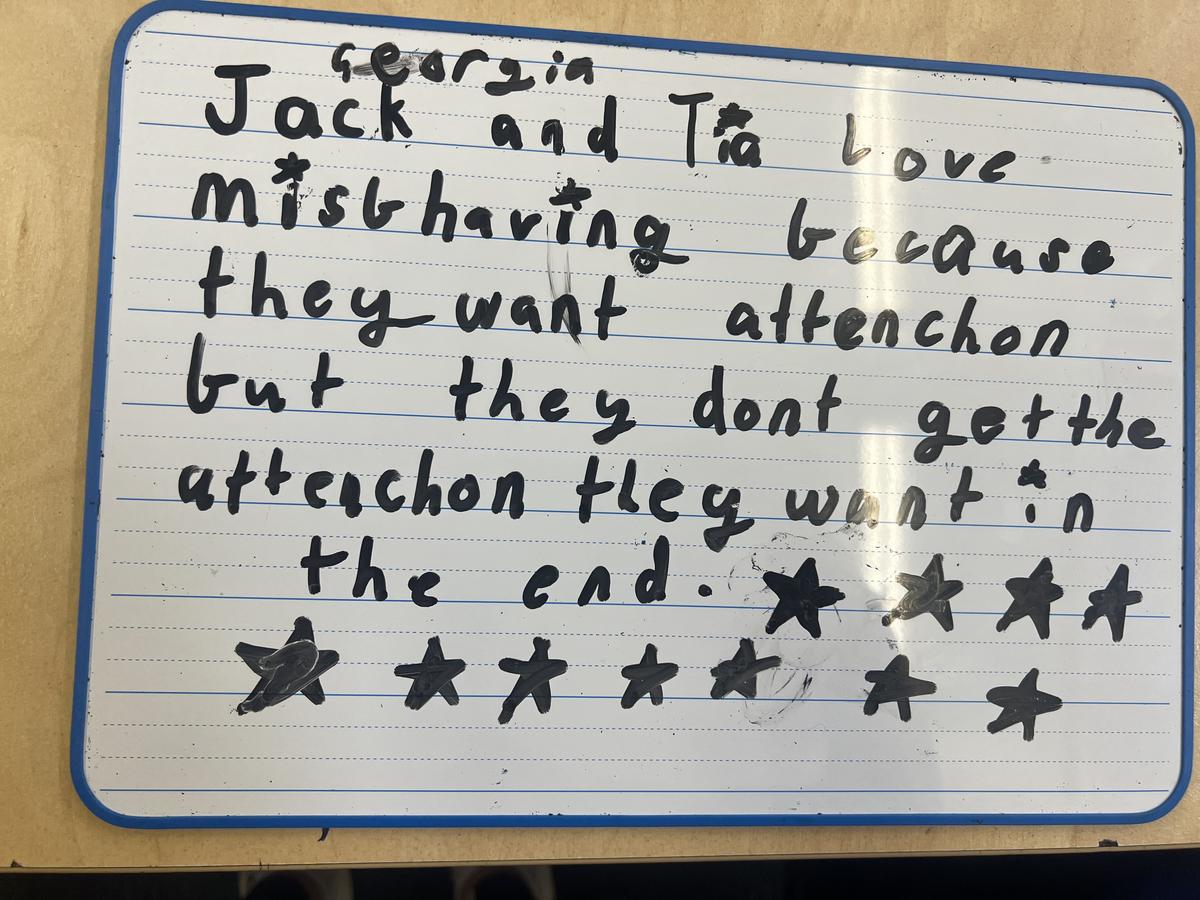 Georgia
Jack and Tia love
misbhaving because
they want attenchon
but they dont get the
attenchon they want in
the end.